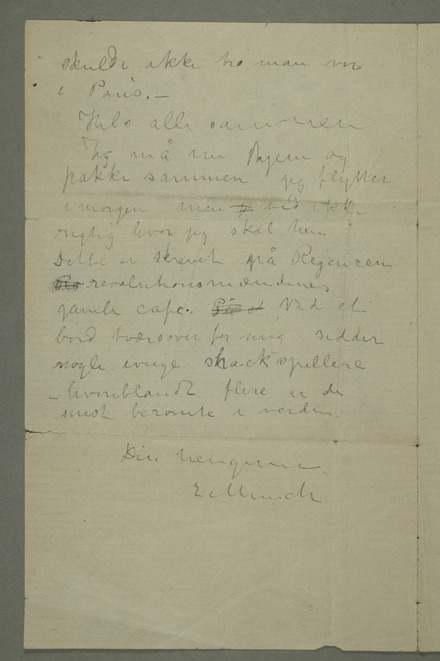 skulde ikke tro man var
i Paris. –
Hils alle sammen
Jeg må nu hjem og
pakke sammen jeg flytter
i morgen men ved ikke
rigtig hvor jeg skal hen.
Dette er skrevet på Regencen
revolutionsmændenes
gamle cafe. Ved et
bord tværsover for mig sidder
nogle ivrige skackspillere
– hvoriblandt flere er de
mest berømte i verden.
Din hengivne
E Munch